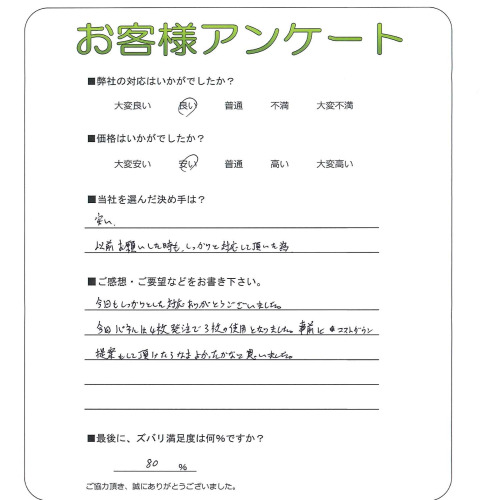 お客様アンケート
■弊社の対応はいかがでしたか？
大変良い 良い 普通 不満 大変不満
■価格はいかがでしたか？
大変安い 安い 普通 高い 大変高い
■当社を選んだ決め手は？
安い、
以前お願いした時も、しっかりと対応して頂いた為
■ご感想・ご要望などをお書き下さい。
今日もしっかりとした対応ありがとうございました。
今回パネルは4枚発注で3枚の使用となりました。事前に コストダウン
提案もして頂けたらなおよかったかなと思いました。
■最後に、ズバリ満足度は何%ですか？
80 %
ご協力頂き、誠にありがとうございました。